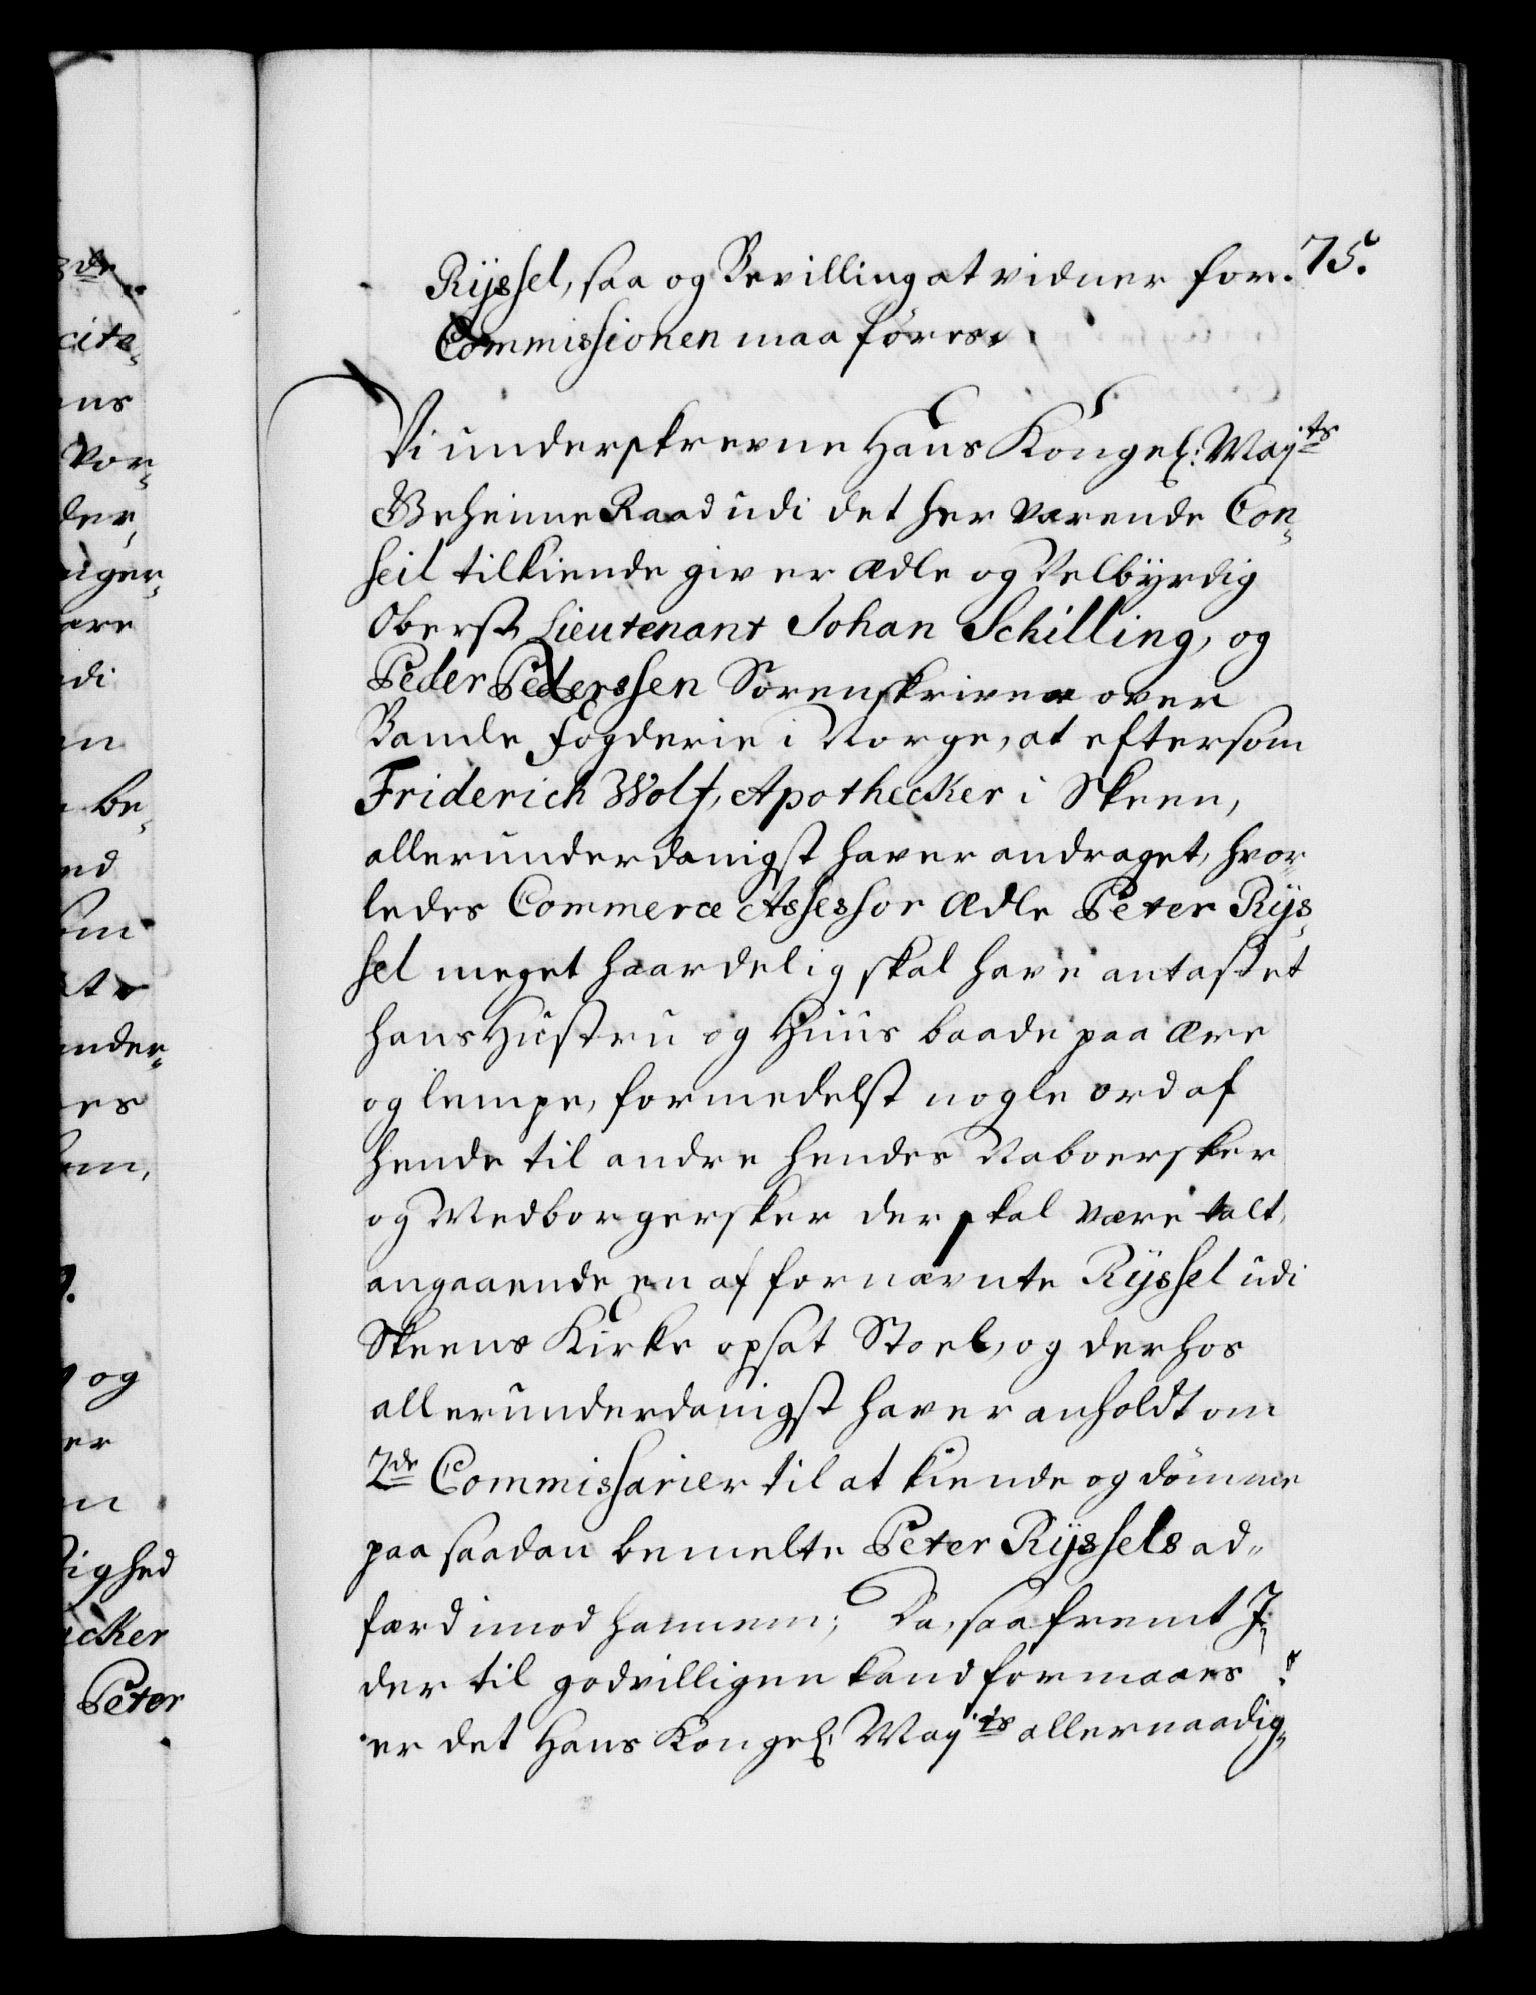 75.
Rijssel, saa og Bevilling at vidner for
Commissionen maa föres.
Vi underskrevne Hans Kongel: Mayts
Geheime Raad udi det her værende Con-
seil tilkiende giver Ædle og Velbÿrdig
Oberst Lieutenant Johan Schilling, og
Peder Pederssen Sorenskriver over
Bamle Fogderie i Norge, at eftersom
Friderich Wolf, Apothecker i Skeen,
allerunderdanigst haver andraget, hvor-
ledes Commerce Assessor Ædle Peter Rijs-
sel meget haardelig skal have antastet
hans Hustru og Huus baade paa ære
og lempe, formedelst nogle ord af
hende til andre hendes Naboersker
og Medborgersker der skal være talt,
angaaende en af fornævnte Rijssel udi
Skeens Kirke opsat Stoel, og derhos
allerunderdanigst haver anholdt om
2de Commissarier til at kiende og dömme
paa saadan bemelte Peter Rijssels ad-
færd imod hannem; Da, saafremt I
der til godvilligen kand formaaes
er det Hans Kongel: Mayts allernaadig-